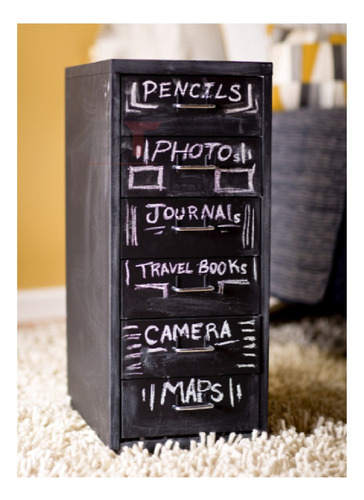 PENCILS
PHOTOs
JOURNAls
TRAVEL BOOKs
CAMERA
MAPS